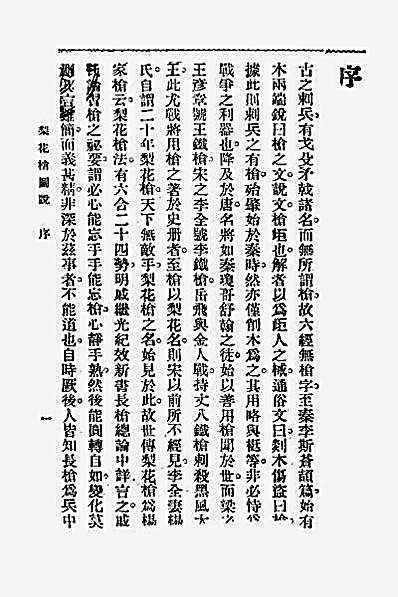 序
古之刺兵。有戈殳矛戟諸名。而無所謂槍。故六經無槍字。至秦李斯蒼頡篇。始有
木兩端銳曰槍之文。說文。槍岠也。解者以爲歫人之械。通俗文曰。剡木傷盜曰槍。
據此則刺兵之有槍。殆肇始於秦時。然亦僅創木爲之。其用略與梃等。非必恃爲
戰爭之利器也。降及於唐。名將如秦瓊哥舒翰之徒。始以善用槍聞於世。而梁之
王彥章號王鐵槍。宋之李全號李鐵槍。岳飛與金人戰。持丈八鐵槍刺殺黑風大
王。此尤戰將用槍之著於史册者。至槍以梨花名。則宋以前所不經見。李全妻楊
氏自謂二十年梨花槍。天下無敵手。梨花槍之名。始見於此。故世傳梨花槍爲楊
家槍云。梨花槍法。有六合二十四勢。明戚繼光紀效新書長槍總論中詳言之。戚
槍之祕要。謂必心能忘手。手能忘槍。心靜手熟。然後能圓轉自如。變化莫
測。其言雖簡。而義甚精。非深於茲事者。不能道也。自時厥後。人皆知長槍爲兵中
梨花槍圖說 序 一